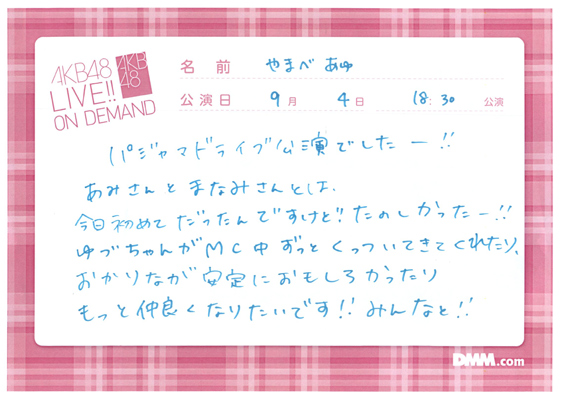 AKB48
LIVE!!
ON DEMAND
AKB
48
名 前 やまべ あゆ
公演日 9月 4日 18:30 公演
パジャマドライブ公演でしたー!!
あみさんとまなみさんとは、
今日初めてだったんですけど!!たのしかったー!!
ゆづちゃんがMC中ずっとくっついてきてくれたり、
おかりなが安定におもしろかったり
もっと仲良くなりたいです!!みんなと!!
DMM.com